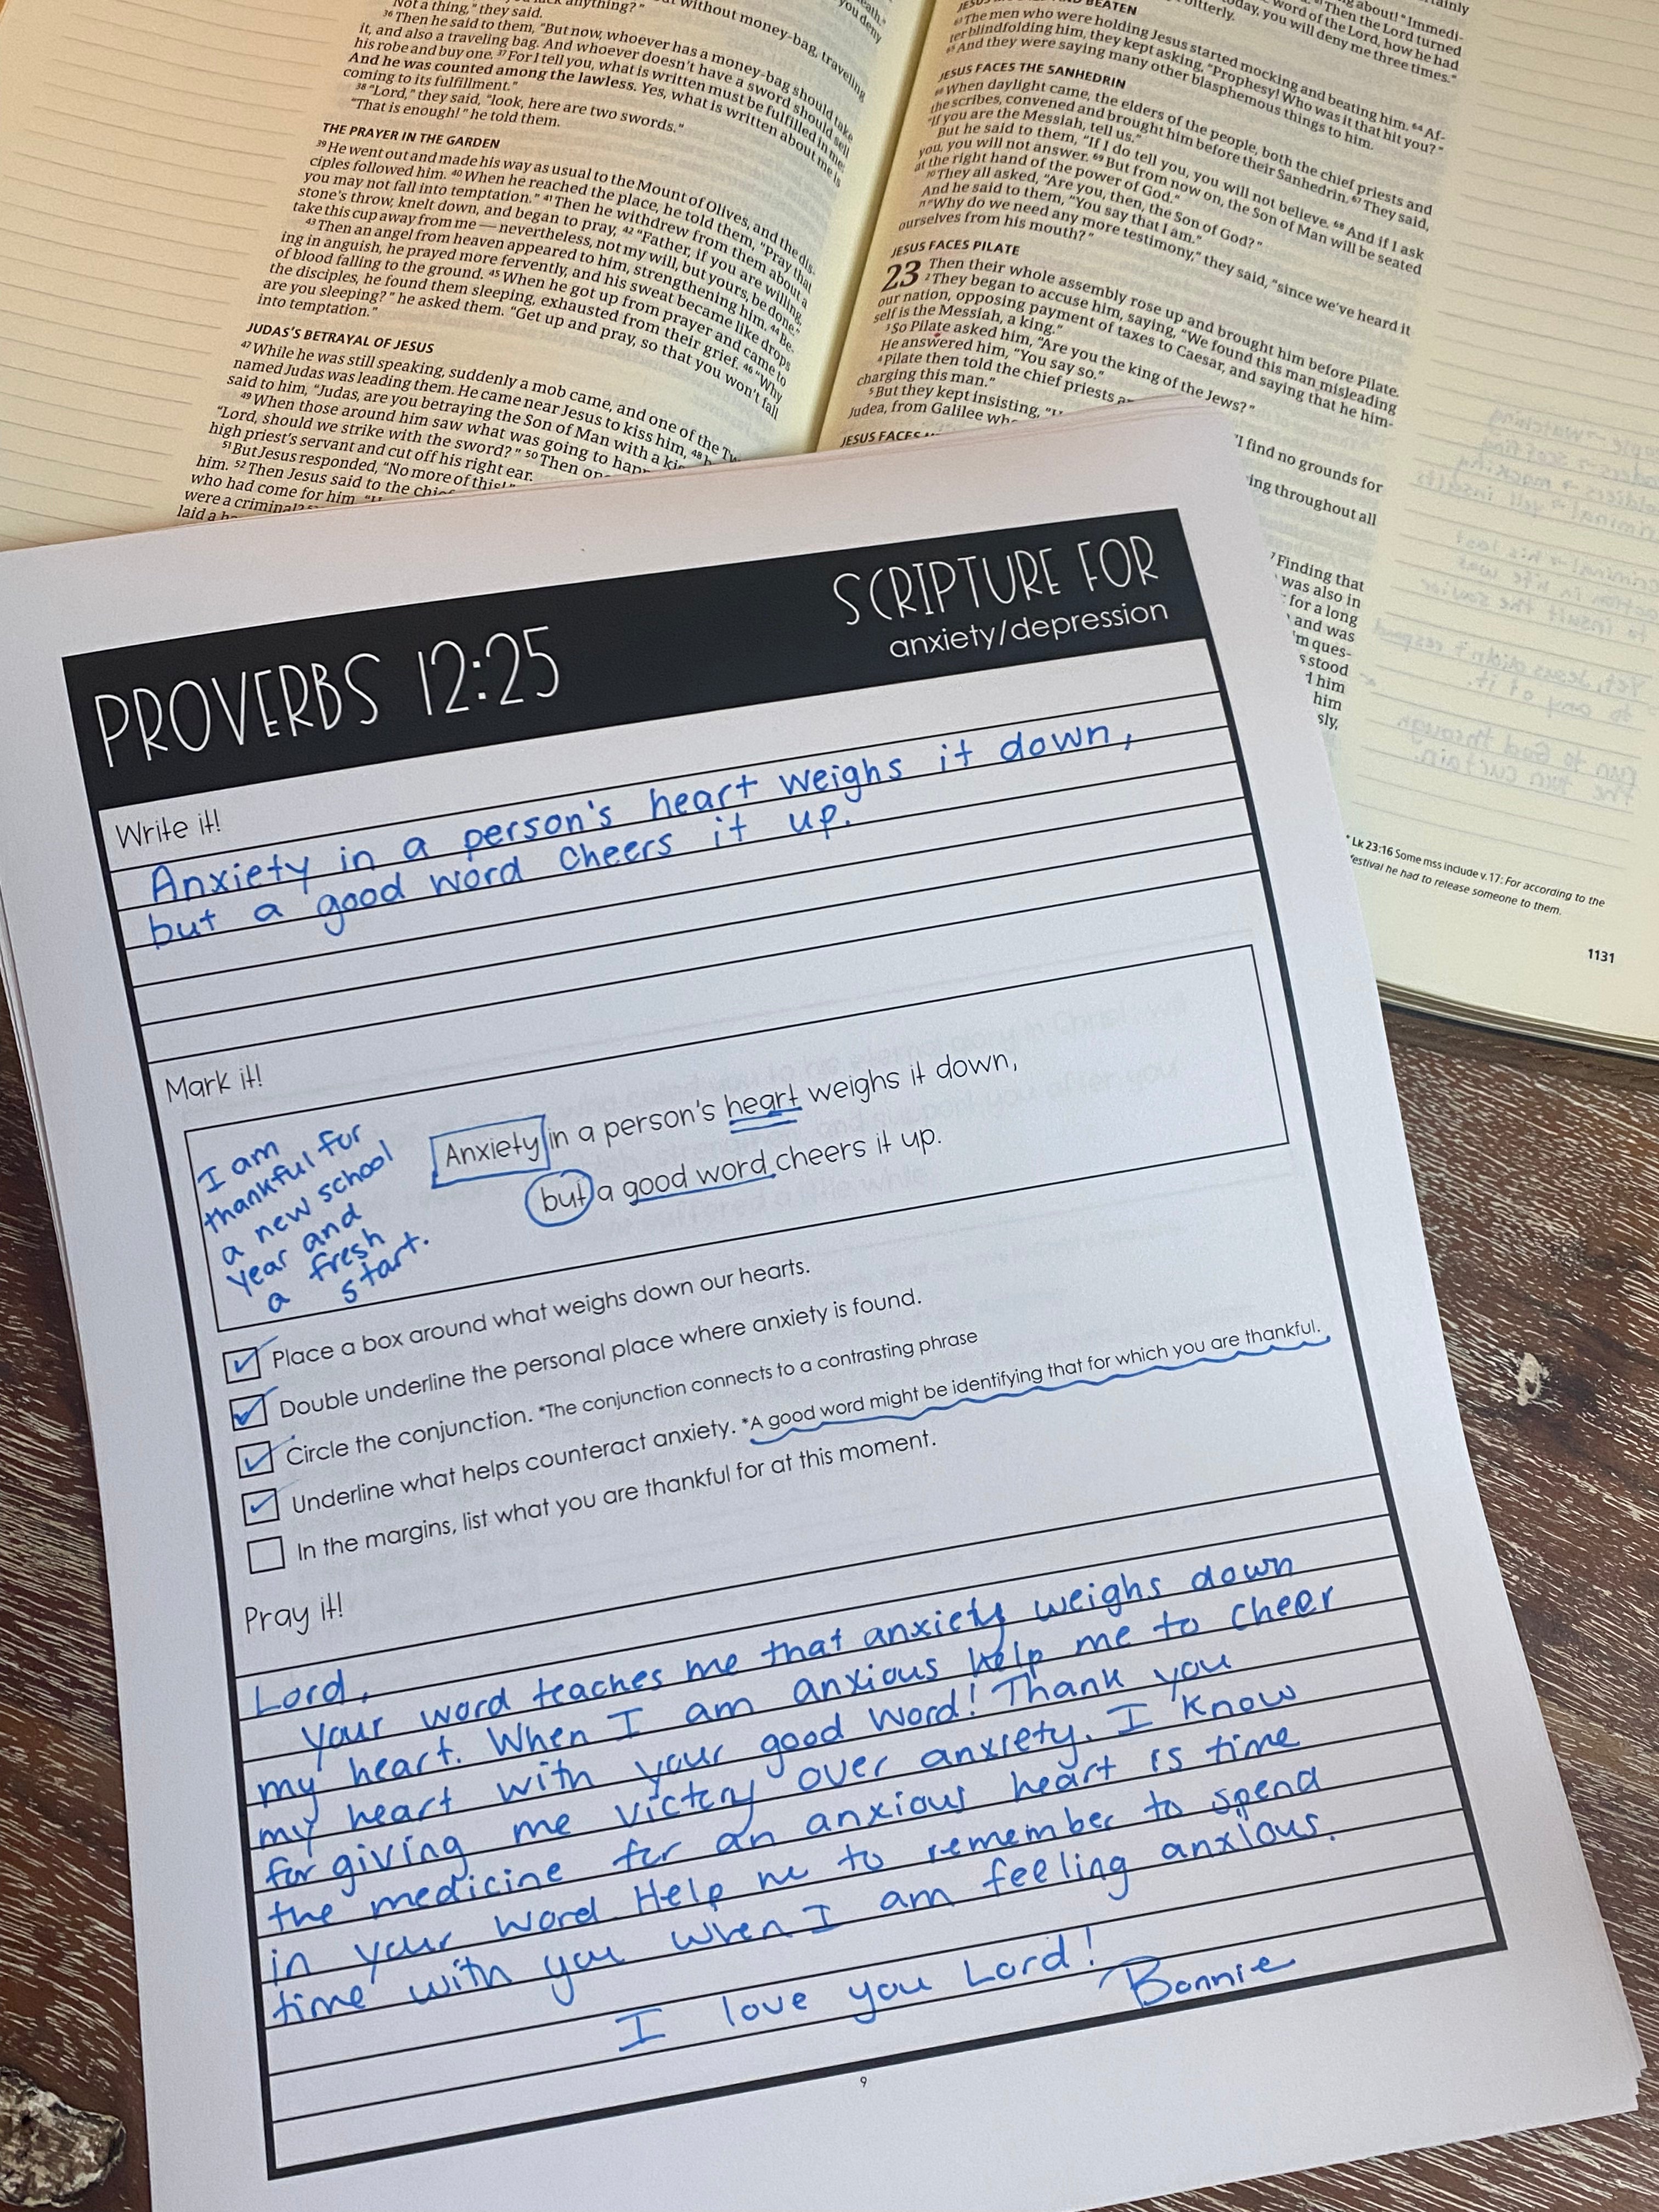 Not a thing," they said.
36 Then he said to them, "But now, whoever has a money-bag should take
it, and also a traveling bag. And whoever doesn't have a sword should sell
his robe and buy one. 37 For I tell you, what is written must be fulfilled in me:
And he was counted among the lawless. Yes, what is written about me is
coming to its fulfillment."
38 "Lord," they said, "look, here are two swords."
"That is enough!" he told them.
THE PRAYER IN THE GARDEN
39 He went out and made his way as usual to the Mount of Olives, and the dis-
ciples followed him. 40 When he reached the place, he told them, "Pray that
you may not fall into temptation." 41 Then he withdrew from them about a
stone's throw, knelt down, and began to pray, 42 "Father, if you are willing,
take this cup away from me — nevertheless, not my will, but yours, be done."
43 Then an angel from heaven appeared to him, strengthening him. 44 Be-
ing in anguish, he prayed more fervently, and his sweat became like drops
of blood falling to the ground. 45 When he got up from prayer and came to
the disciples, he found them sleeping, exhausted from their grief. 46 "Why
are you sleeping?" he asked them. "Get up and pray, so that you won't fall
into temptation."
JUDAS'S BETRAYAL OF JESUS
47 While he was still speaking, suddenly a mob came, and one of the Tw
named Judas was leading them. He came near Jesus to kiss him, 48 b
said to him, "Judas, are you betraying the Son of Man with a ki
49 When those around him saw what was going to hap
"Lord, should we strike with the sword?" 50 Then on
high priest's servant and cut off his right ear.
51 But Jesus responded, "No more of this!"
him. 52 Then Jesus said to the chi
who had come for him,
were a criminal?
laid a
BEATEN
63 The men who were holding Jesus started mocking and beating him. 64 Af-
ter blindfolding him, they kept asking, "Prophesy! Who was it that hit you?"
65 And they were saying many other blasphemous things to him.
JESUS FACES THE SANHEDRIN
66 When daylight came, the elders of the people, both the chief priests and
the scribes, convened and brought him before their Sanhedrin. 67 They said,
"If you are the Messiah, tell us."
But he said to them, "If I do tell you, you will not believe. 68 And if I ask
you, you will not answer. 69 But from now on, the Son of Man will be seated
at the right hand of the power of God."
70 They all asked, "Are you, then, the Son of God?"
And he said to them, "You say that I am."
71 "Why do we need any more testimony," they said, "since we've heard it
ourselves from his mouth?"
JESUS FACES PILATE
23 Then their whole assembly rose up and brought him before Pilate.
2 They began to accuse him, saying, "We found this man misleading
our nation, opposing payment of taxes to Caesar, and saying that he him-
self is the Messiah, a king."
3 So Pilate asked him, "Are you the king of the Jews?"
He answered him, "You say so."
4 Pilate then told the chief priests
I find no grounds for
charging this man."
5 But they kept insisting,
ing throughout all
Judea, from Galilee
JESUS FACES
7 Finding that
was also in
for a long
and was
m ques-
stood
him
him
sly,
* Lk 23:16 Some mss include v. 17: For according to the
festival he had to release someone to them.
1131
PROVERBS 12:25
SCRIPTURE FOR
anxiety/depression
Write it!
Anxiety in a person's heart weighs it down,
but a good word cheers it up.
Mark it!
I am
thankful for
a new school
year and
a fresh
start.
Anxiety in a person's heart weighs it down,
but a good word cheers it up.
Place a box around what weighs down our hearts.
Double underline the personal place where anxiety is found.
Circle the conjunction. *The conjunction connects to a contrasting phrase
Underline what helps counteract anxiety. *A good word might be identifying that for which you are thankful.
In the margins, list what you are thankful for at this moment.
Pray it!
Lord,
your word teaches me that anxiety weighs down
my heart. When I am anxious help me to cheer
my heart with your good word! Thank you
for giving me victory over anxiety. I know
the medicine for an anxious heart is time
in your word. Help me to remember to spend
time with you when I am feeling anxious.
I love you Lord!
Bonnie
9